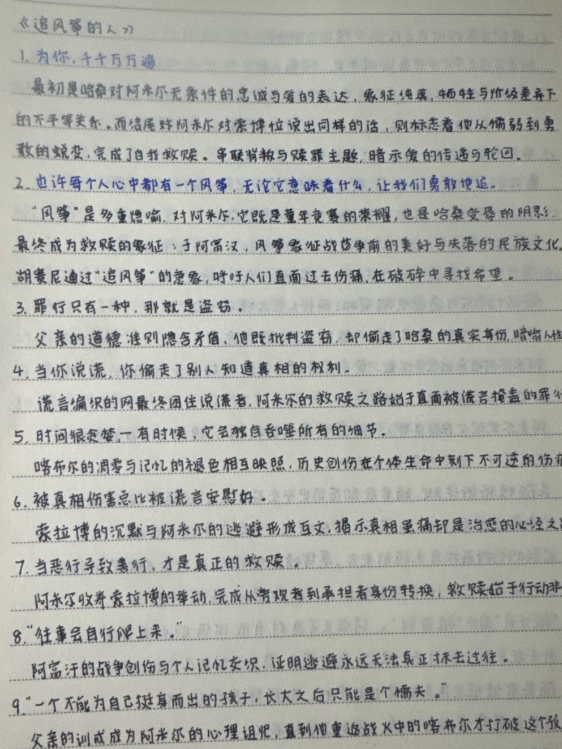 《追风筝的人》
1. 为你,千千万万遍
最初是哈桑对阿米尔无条件的忠诚与爱的表达,象征纯真,牺牲与阶级差异下
的不平等关系。而结尾时阿米尔对索博拉说出同样的话,则标志着他从懦弱到勇
敢的蜕变,完成了自我救赎。串联背叛与赎罪主题,暗示爱的传递与轮回。
2. 也许每个人心中都有一个风筝,无论它意味着什么,让我们勇敢地追。
"风筝"是多重隐喻,对阿米尔,它既是童年竞赛的荣耀,也是哈桑受辱的阴影,
最终成为救赎的象征;于阿富汗,风筝象征战争前的美好与失落的民族文化,
胡赛尼通过"追风筝"的意象,呼吁人们直面过去伤痛,在破碎中寻找希望。
3. 罪行只有一种,那就是盗窃。
父亲的道德准则隐含矛盾,他既批判盗窃,却偷走了哈桑的真实身份,暗喻人性
4. 当你说谎,你偷走了别人知道真相的权利。
谎言编织的网最终困住说谎者,阿米尔的救赎之路始于直面被谎言掩盖的罪行
5. 时间很贪婪—有时候,它会独自吞噬所有的细节。
喀布尔的凋零与记忆的褪色相互映照,历史创伤在个体生命中刻下不可逆的伤痕
6. 被真相伤害总比被谎言安慰好。
索拉博的沉默与阿米尔的逃避形成互文,揭示真相虽痛却是治愈的必经之
7. 当恶行导致善行,才是真正的救赎。
阿米尔收养索拉博的举动,完成从旁观者到承担者身份转换,救赎始于行动非
8. "往事会自行爬上来。"
阿富汗的战争创伤与个人记忆交织,证明逃避永远无法真正抹去过往。
9. "一个不能为自己挺身而出的孩子,长大之后只能是个懦夫。"
父亲的训诫成为阿米尔的心理诅咒,直到他重返战火中的喀布尔才打破这个